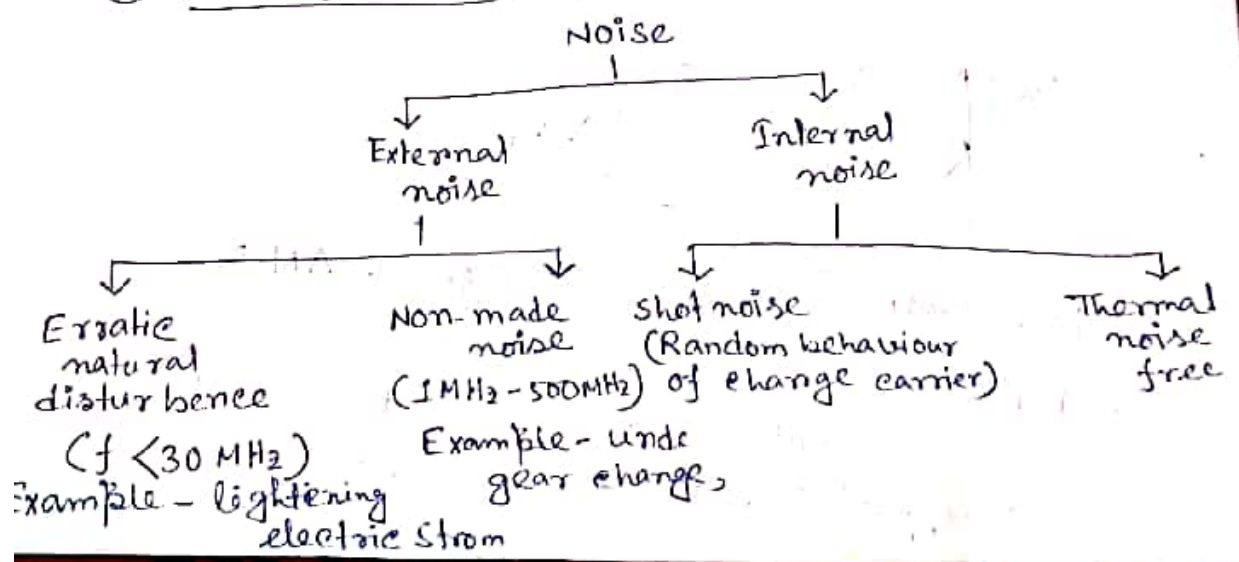 Noise
External
noise
Internal
noise
Erratic
natural
disturbence
(f < 30 MHz)
Example - lightening
electric Strom
Non-made
noise
(1MHz - 500MHz)
Example - unde
gear change,
Shot noise
(Random behaviour
of change carrier)
Thermal
noise
free